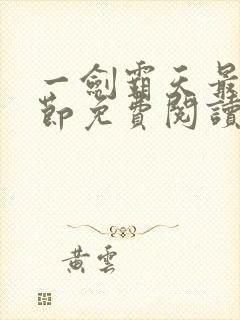 一劍霸天最
節免費閱讀
黃雲